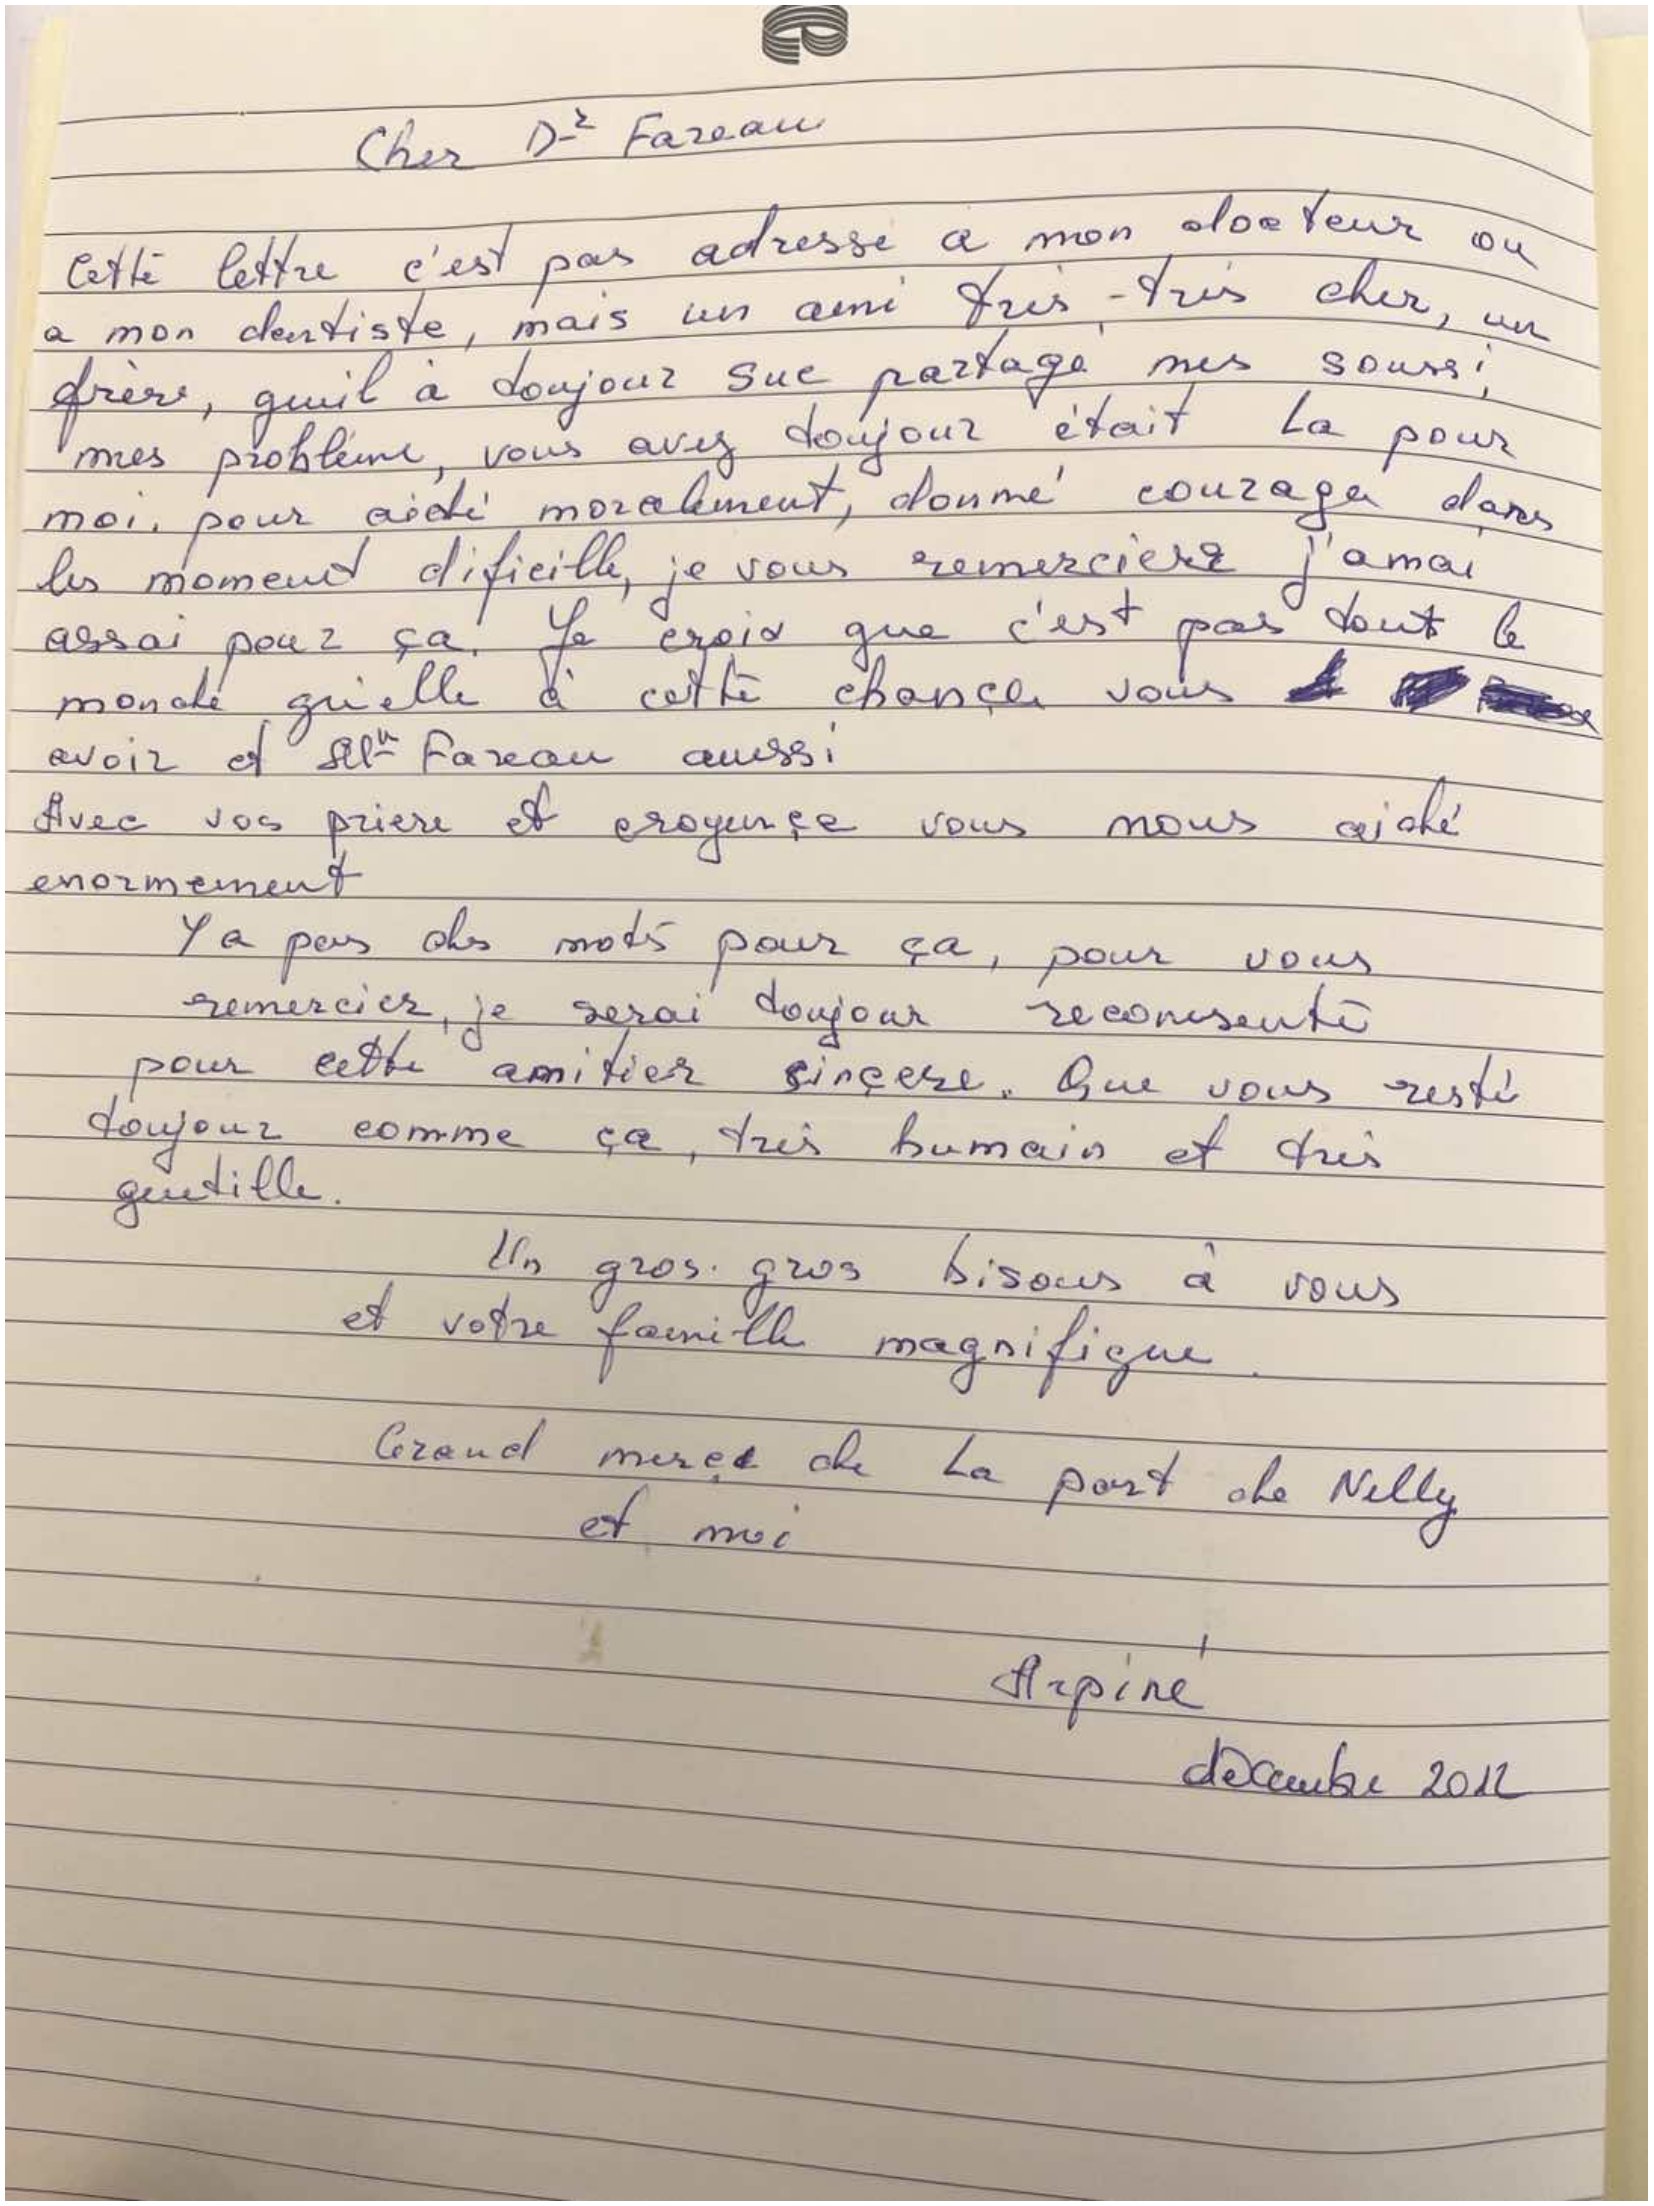 Cher D-r Fareau
Cetté lettre c'est pas adressé a mon docteur ou
a mon dentiste, mais un ami très-très cher, un
frère, quuil à toujour sue partagé mes soussi,
mes problème, vous avez toujour était La pour
moi. pour aidé moralement, donné courage dans
les moment dificille, je vous remercierz j'amai
assai pour ça. Je croix que c'est pas tout le
monde qu'elle à cetté chançe vous
avoir et Fareau aussi
Avec vos priere et croyençe vous nous aidé
enormement
Y a pas des mots pour ça, pour vous
remercier, je serai toujour
pour cette amitier sinçere. Que vous resté
toujour comme ça, très humain et très
gentille.
Un gros. gros bisous à vous
et votre famille magnifique.
Grand de La part de Nelly
et moi
Arpiné
décembre 2012